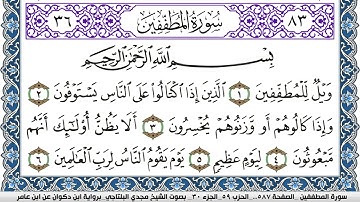 ٨٣ سُورَةُ المُطَفِّفِينَ ٣٦
بِسْمِ اللَّهِ الرَّحْمَٰنِ الرَّحِيمِ
وَيْلٌ لِّلْمُطَفِّفِينَ ١ الَّذِينَ إِذَا اكْتَالُوا عَلَى النَّاسِ يَسْتَوْفُونَ ٢
وَإِذَا كَالُوهُمْ أَو وَّزَنُوهُمْ يُخْسِرُونَ ٣ أَلَا يَظُنُّ أُولَٰئِكَ أَنَّهُم
مَّبْعُوثُونَ ٤ لِيَوْمٍ عَظِيمٍ ٥ يَوْمَ يَقُومُ النَّاسُ لِرَبِّ الْعَالَمِينَ ٦
سورة المطففين .. الصفحة ٥٨٧ ... الحزب ٥٩ .. الجزء ٣٠ .. بصوت الشيخ مجدي البلتاجي .. برواية ابن ذكوان عن ابن عامر